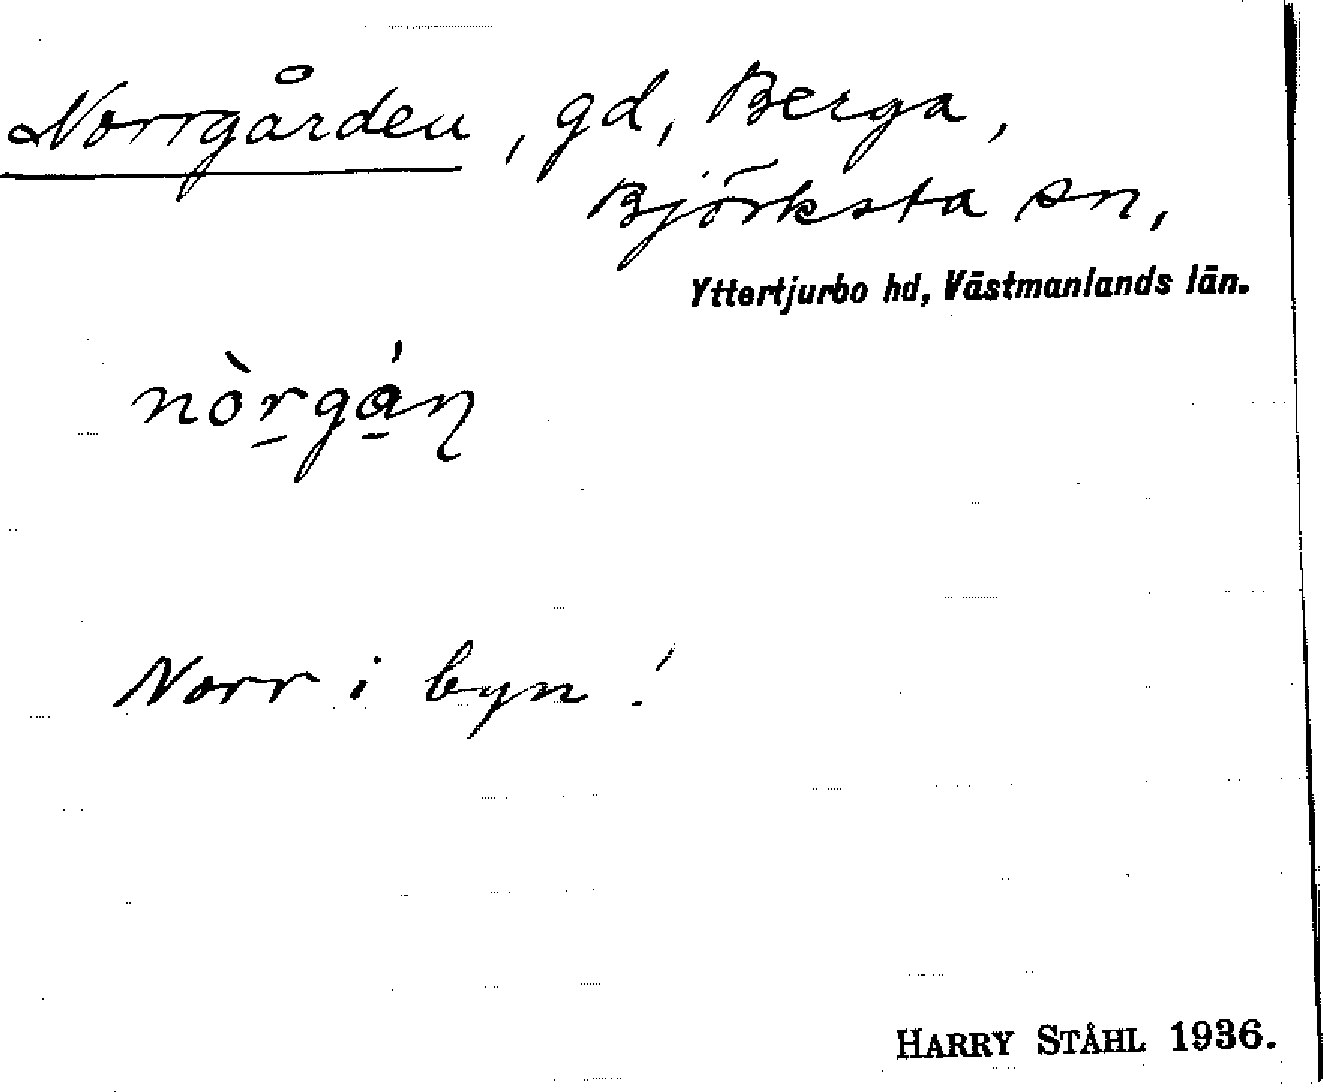 Norrgården, gd, Berga,
Björksta sn,
Yttertjurbo hd, Västmanlands län.
nòr̲gá̲ɳ
Norr i byn!
HARRY STÅHL 1936.